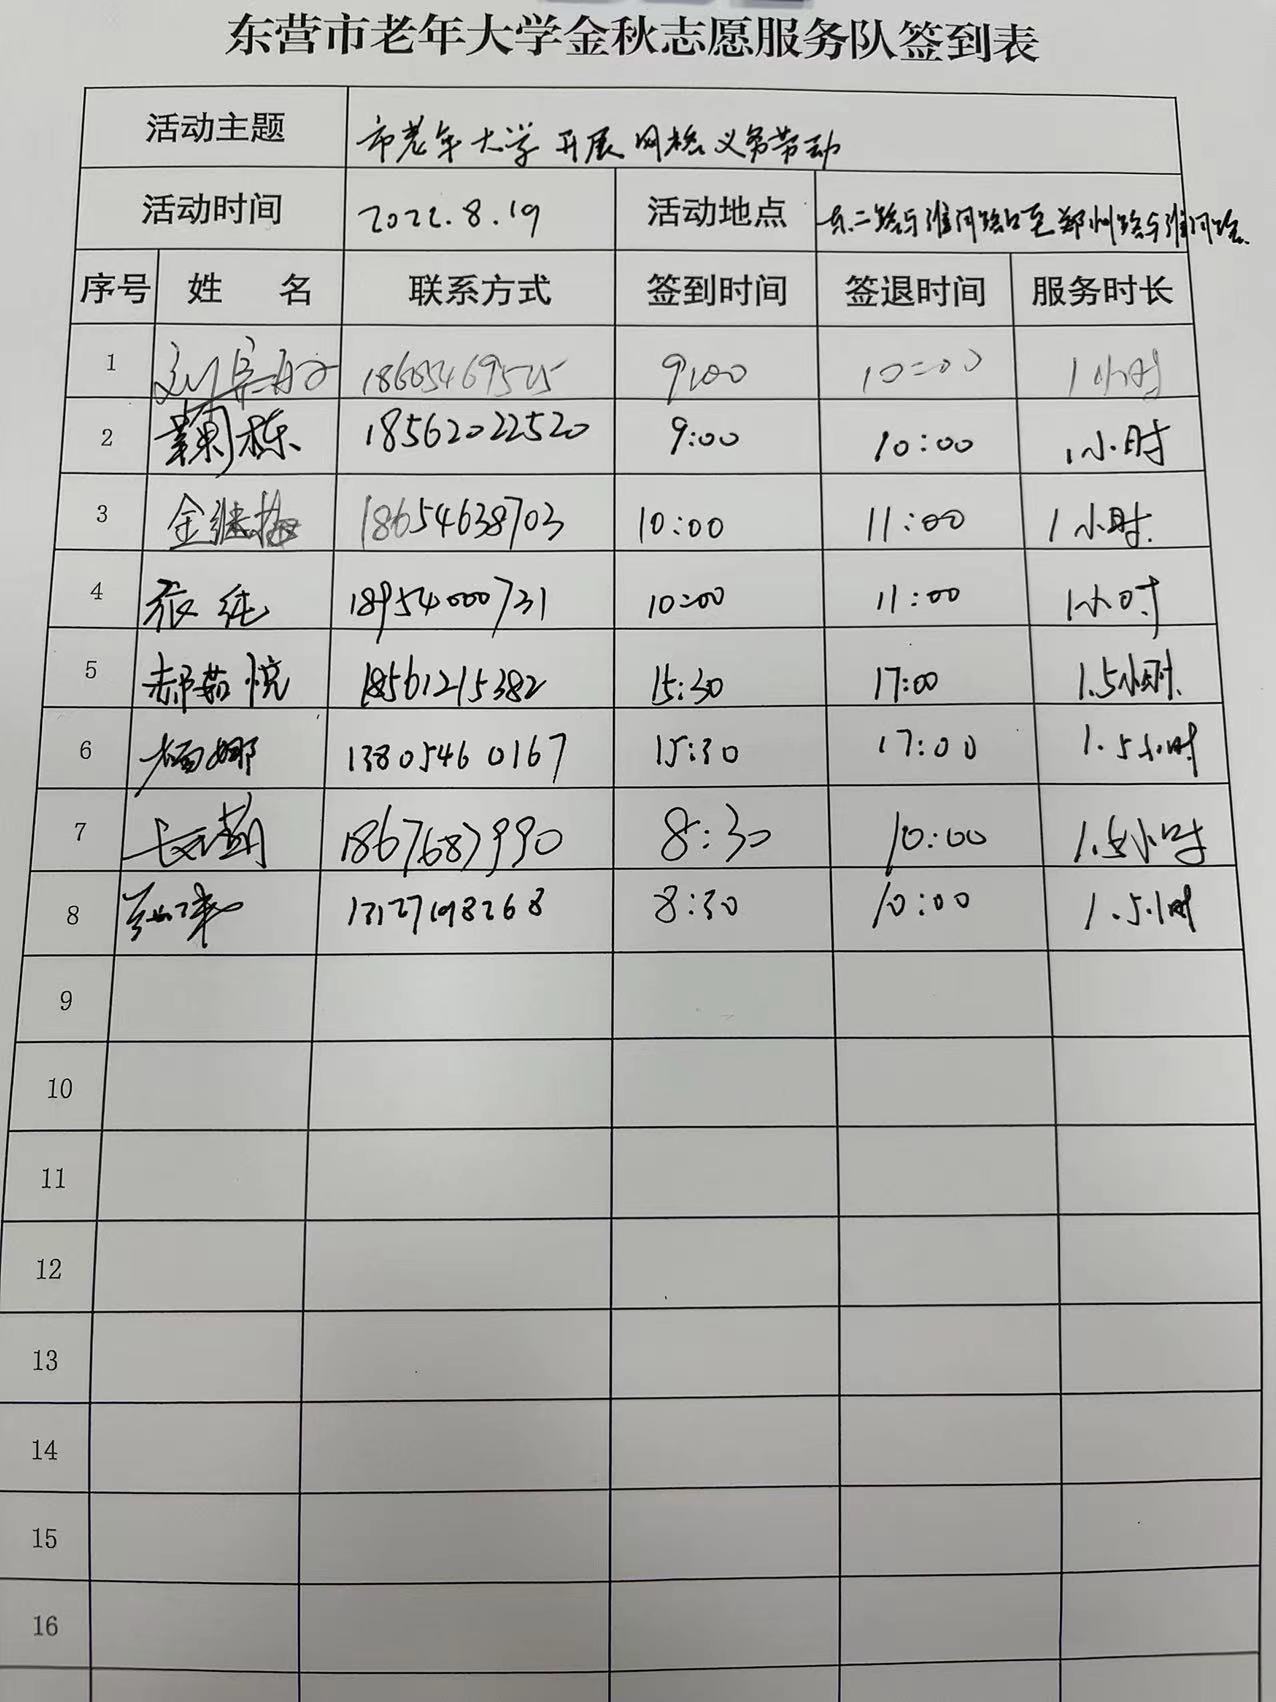 东营市老年大学金秋志愿服务队签到表
活动主题 市老年大学开展网格义务劳动
活动时间 2022.8.19 活动地点 东二路与淮河路口至郑州路与淮河路
序号 姓 名 联系方式 签到时间 签退时间 服务时长
1 18605469525 9:00 10:00 1小时
2 蔺栋 18562022520 9:00 10:00 1小时
3 金继梅 18654638703 10:00 11:00 1小时.
4 张纯 18954000731 10:00 11:00 1小时
5 郝茹悦 18561215382 15:30 17:00 1.5小时.
6 杨娜 13805460167 15:30 17:00 1.5小时
7 1867687990 8:30 10:00 1.5小时
8 8:30 10:00 1.5小时
9
10
11
12
13
14
15
16